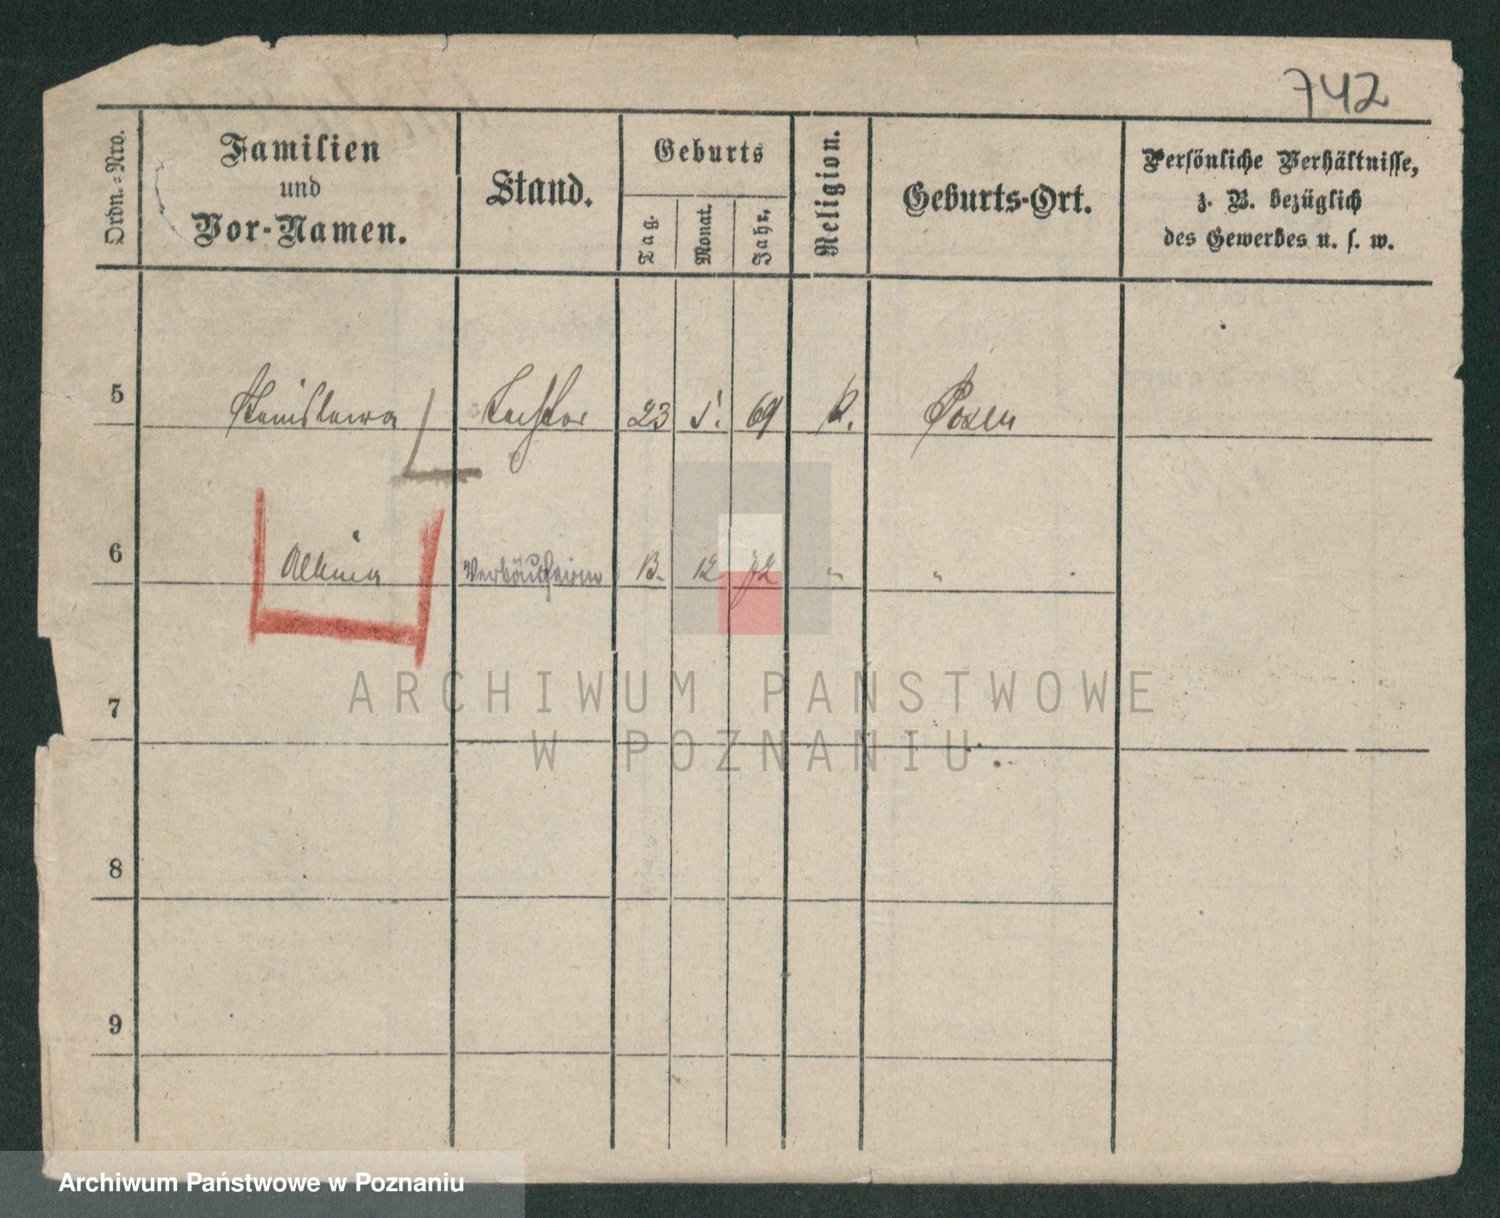 742
Ordn.-Nro.
Familien
und
Vor-Namen.
Stand.
Geburts
Tag.
Monat.
Jahr.
Religion.
Geburts-Ort.
Persönliche Verhältnisse,
z. B. bezüglich
des Gewerbes u. s. w.
5 Stanislawa Tochter 23 5. 69 K. Posen
6 Verkäuferin 12 72 " "
7
ARCHIWUM PAŃSTWOWE
W POZNANIU
8
9
Archiwum Państwowe w Poznaniu